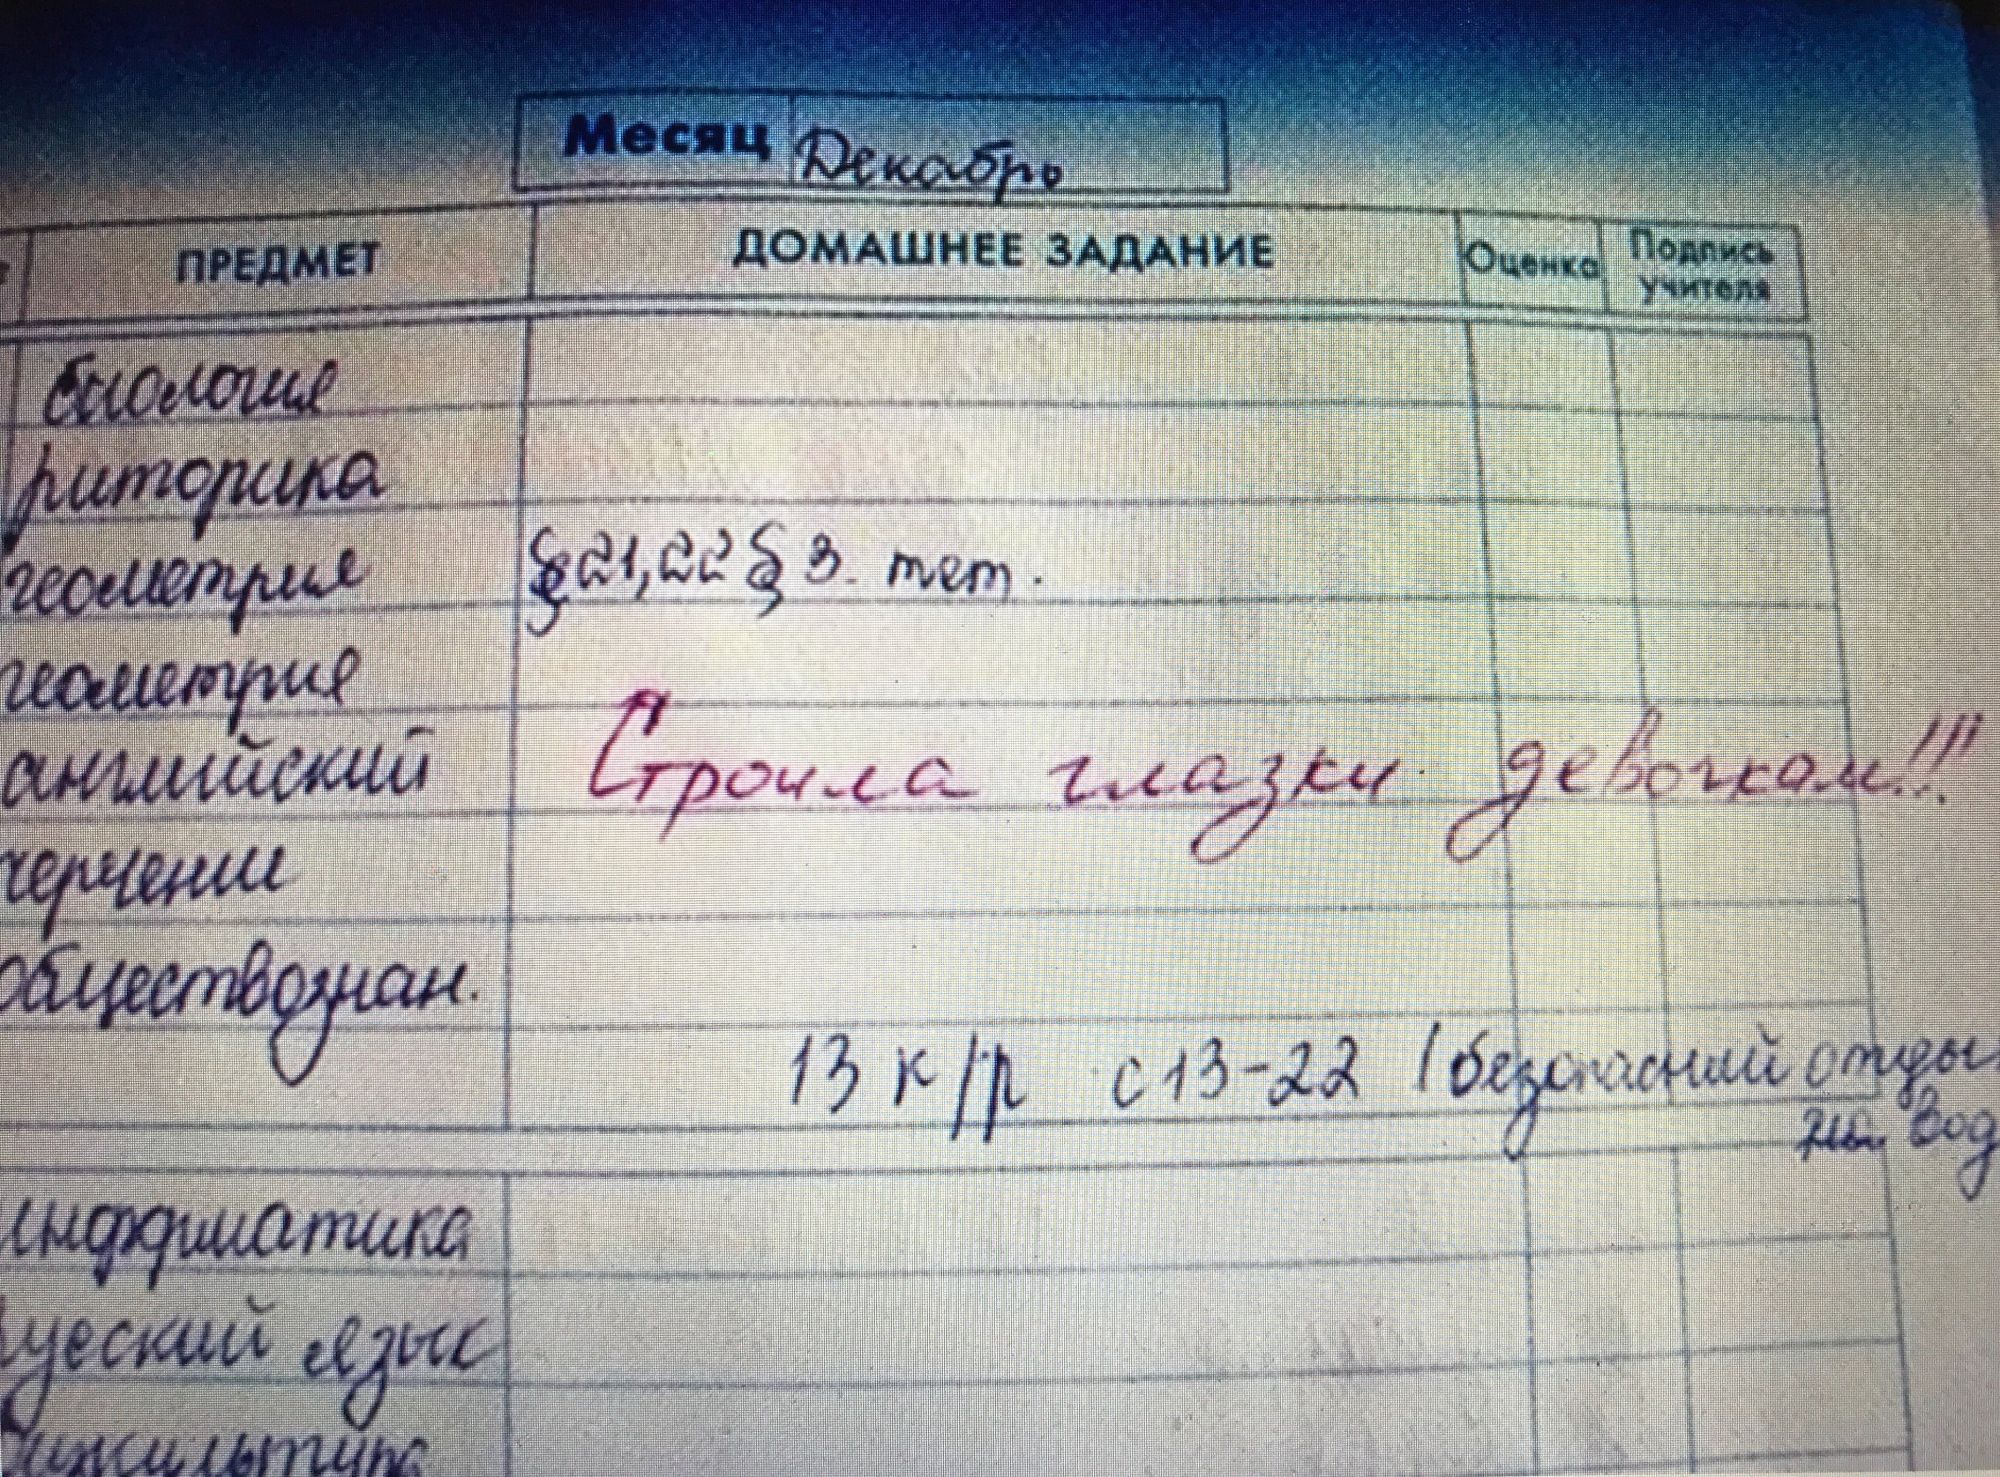 Месяц Декабрь
ПРЕДМЕТ ДОМАШНЕЕ ЗАДАНИЕ Оценка Подпись учителя
биология
риторика
геометрия §21,22 § 3. тет.
геометрия
английский Строила глазки девочкам!!!
черчении
обществознан.
13 к/р с 13-22 (безопасный отды
на вод
информатика
русский язык